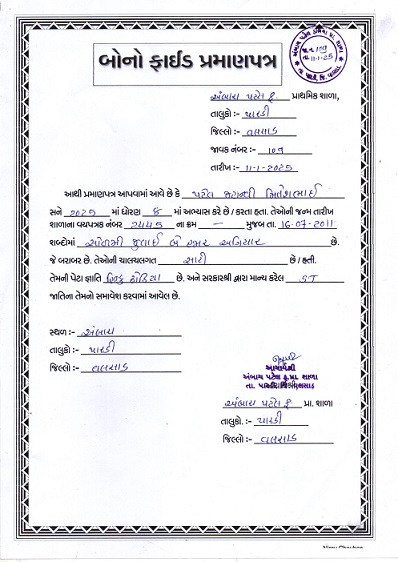 બોનો ફાઈડ પ્રમાણપત્ર
અંબાચ પટેલ ફ. પ્રાથમિક શાળા,
તાલુકો:- પારડી
જિલ્લો:- વલસાડ
જાવક નંબર:- 109
તારીખ:- 11-1-2025
આથી પ્રમાણપત્ર આપવામાં આવે છે કે પટેલ મિતેશભાઈ
સને 2025 માં ધોરણ 8 માં અભ્યાસ કરે છે / કરતા હતા. તેઓની જન્મ તારીખ
શાળાના વયપત્રક નંબર 2445 ના ક્રમ — મુજબ તા. 16-07-2011
શબ્દોમાં સોળમી જુલાઈ બે હજાર અગિયાર છે.
જે બરાબર છે. તેઓની ચાલચલગત સારી છે / હતી.
તેમની પેટા જ્ઞાતિ હિન્દુ ધોડિયા છે. અને સરકારશ્રી દ્વારા માન્ય કરેલ ST
જાતિના તેમનો સમાવેશ કરવામાં આવેલ છે.
સ્થળ:- અંબાચ
તાલુકો:- પારડી
જિલ્લો:- વલસાડ
આચાર્યશ્રી
અંબાચ પટેલ ફ.પ્રા. શાળા
તા. પારડી જિ. વલસાડ
અંબાચ પટેલ ફ. પ્રા. શાળા
તાલુકો. :- પારડી
જિલ્લો :- વલસાડ